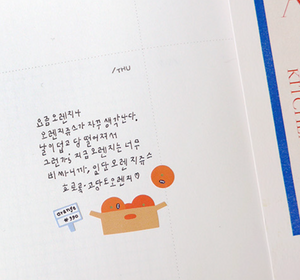 /THU
요즘 오렌지나
오렌지쥬스가 자꾸 생각난다.
날이 덥고 당 떨어져서
그런가; 지금 오렌지는 너무
비싸니까, 일단 오렌지쥬스
호로록·고당도오렌지
orange
₩990